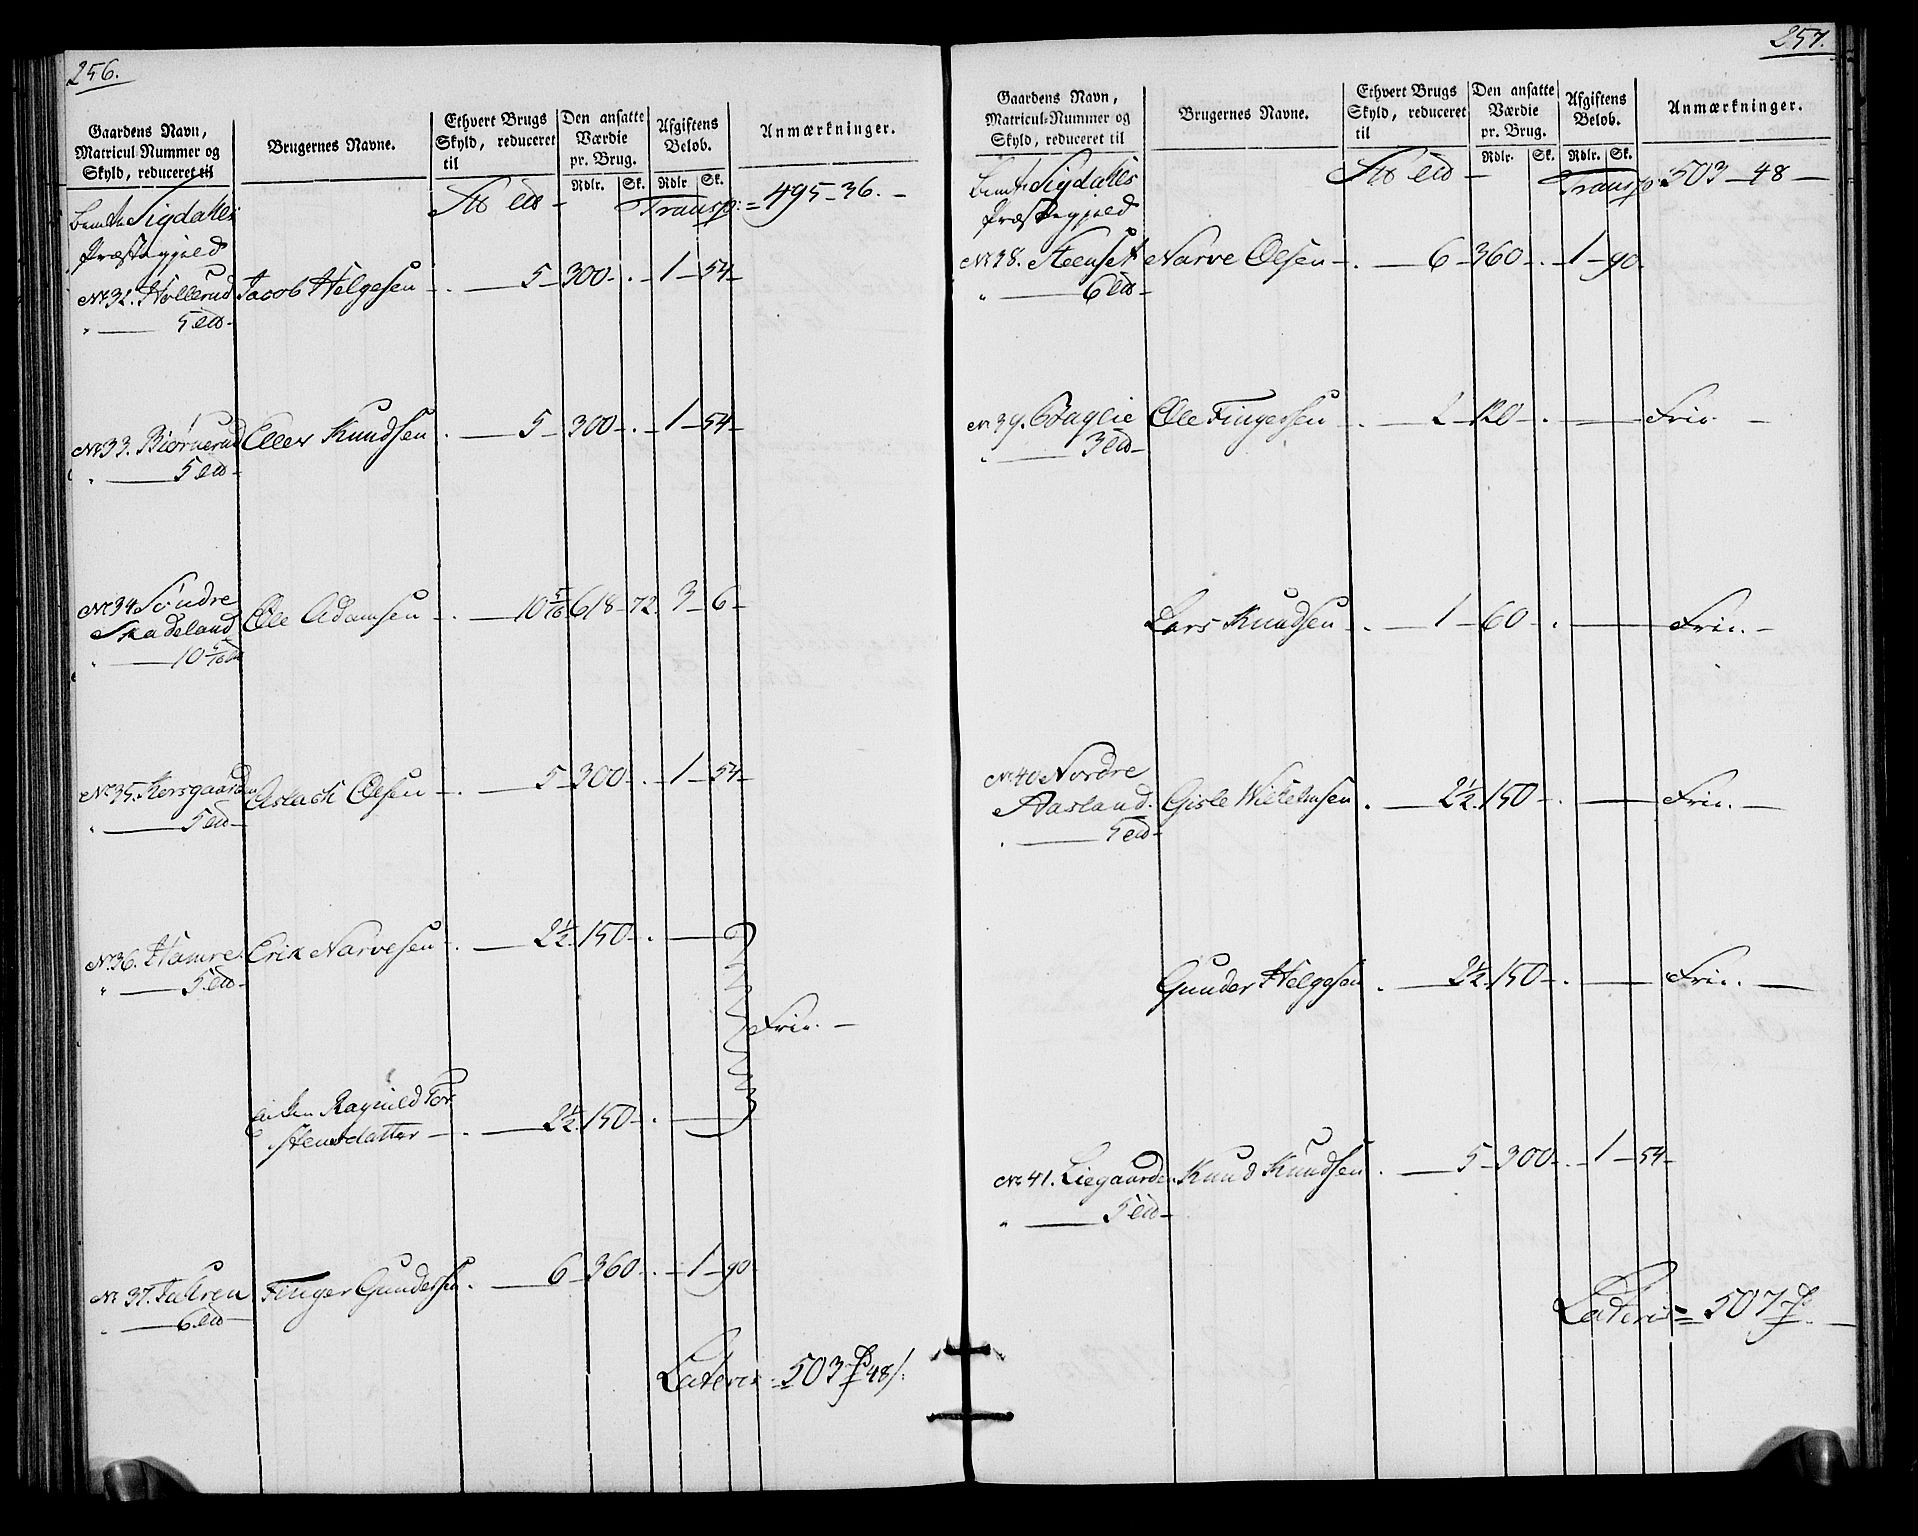 256.
Gaardens Navn, Matricul-Nummer og Skyld, reduceret til
Brugernes Navne.
Ethvert Brugs Skyld, reduceret til
Den ansatte Værdie pr. Brug.
Afgiftens Beløb.
Anmærkninger.
Rdlr. Sk. Rdlr. Sk.
Sigdalles Transp: = 495 - 36. -
Præstegjeld
No 32. Hollerud Jacob Helgesen - . 5 - 300 - . - 1 - 54 -
" 5
No 33. Biørnerud Eller Knudsen . 5 - 300 - . - 1 - 54 -
" 5
No 34 Søndre
Skadeland Ole Adamsen - . 10 5/16 618 - 72. 3 - 6 -
" 10 5/16
No 35. Kersgaarden Aslack Olsen - . 5 - 300 - . - 1 - 54 -
" 5
No 36. Hamre Erik Narvesen - . 2 1/2. 150 - .
" 5
Frie. -
Enken Ragnild Tor
stensdatter - . 2 1/2. 150 - .
No 37. Fulren Finger Gundersen . 6 - 360 - . - 1 - 90 -
" 6
Lateris = 503 48
257.
Gaardens Navn, Matricul-Nummer og Skyld, reduceret til
Brugernes Navne.
Ethvert Brugs Skyld, reduceret til
Den ansatte Værdie pr. Brug.
Afgiftens Beløb.
Anmærkninger.
Rdlr. Sk. Rdlr. Sk.
Sigdalles Transp: 503 - 48 -
Præstegjeld
No 38. Steenset Narve Olsen - . 6 - 360 - . - 1 - 90 -
" 6
No 39. Ole Fingersen - . 2 - 120 - . Frie -
" 3
Lars Knudsen - . 1 - 60 - . Frie. -
No 40 Nordre
Aasland. Gisle Wilelmsen . 2 1/2. 150 - . Frie. -
" 5
Gunder Helgesen . 2 1/2. 150 - . Frie. -
No 41. Liegaarden Knud Knudsen . 5 - 300 - . - 1 - 54 -
" 5
Lateris = 507